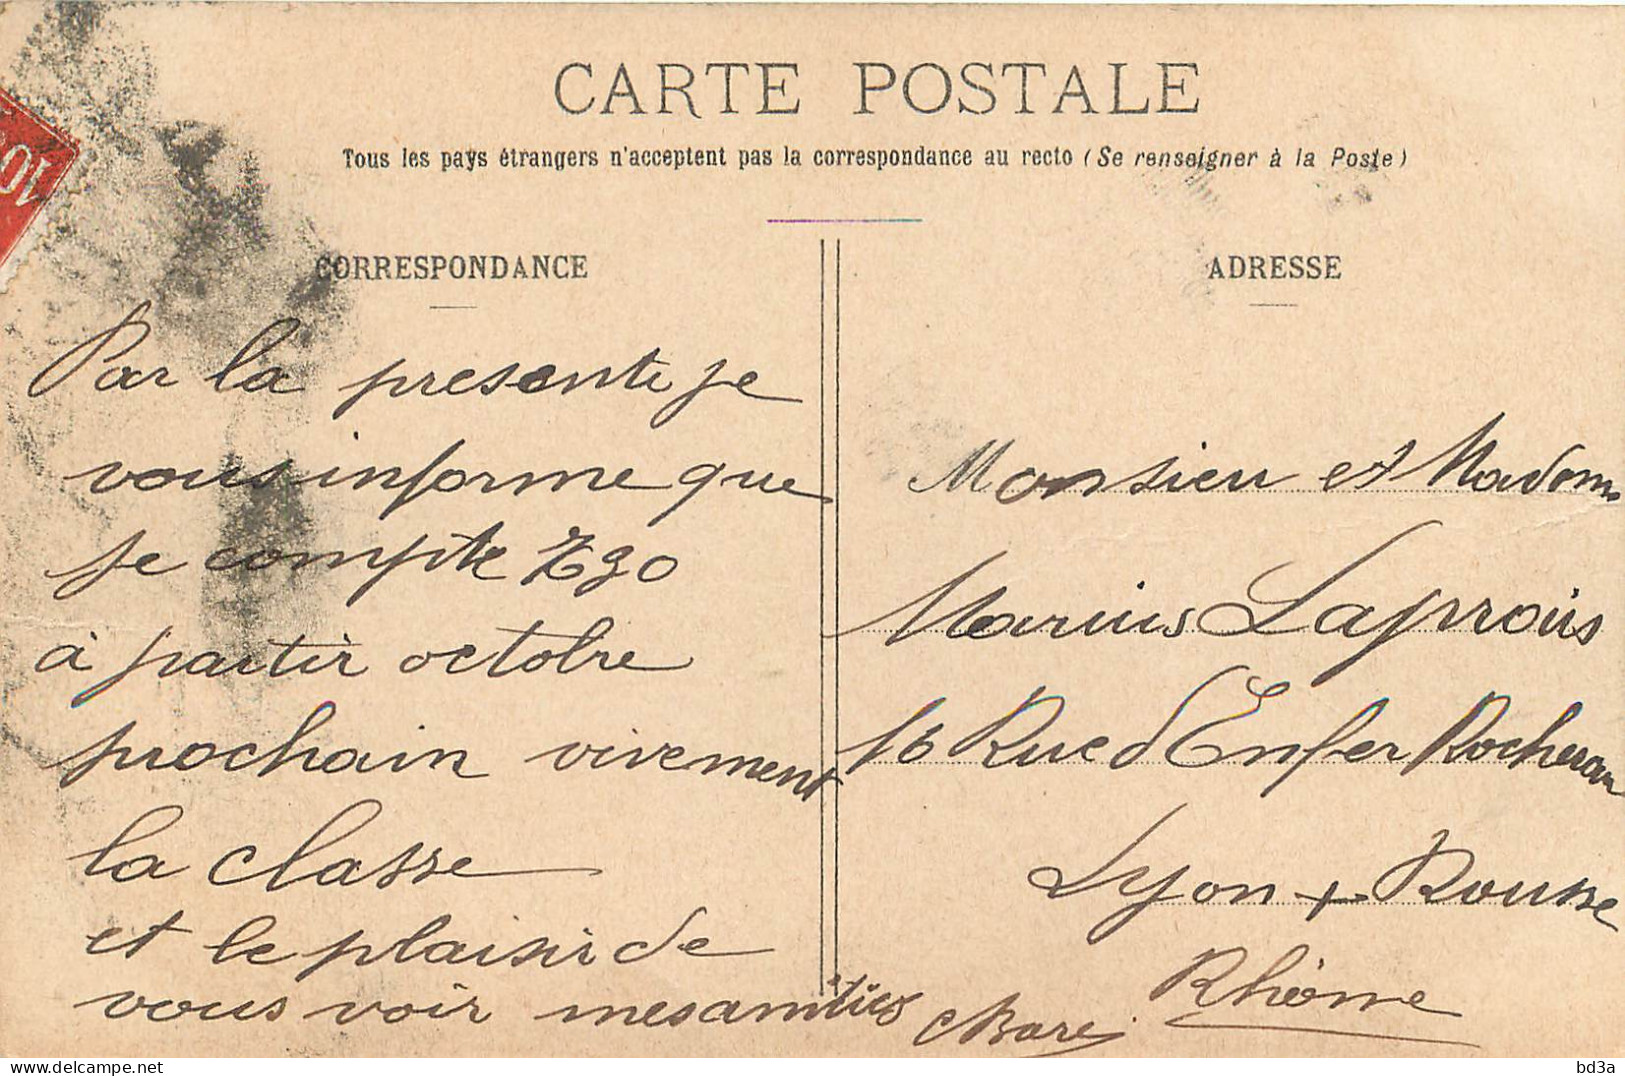 CARTE POSTALE
Tous les pays étrangers n'acceptent pas la correspondance au recto (Se renseigner à la Poste)
10
CORRESPONDANCE
Par la presente je
vous informe que
je compte 730
à partir octobre
prochain vivement
la classe
et le plaisir de
vous voir mes amitiés
ADRESSE
Monsieur et Madame
Marius Laprois
16 Rue d'Enfer Rocheram
Lyon + Rousse
Rhône
bd3a